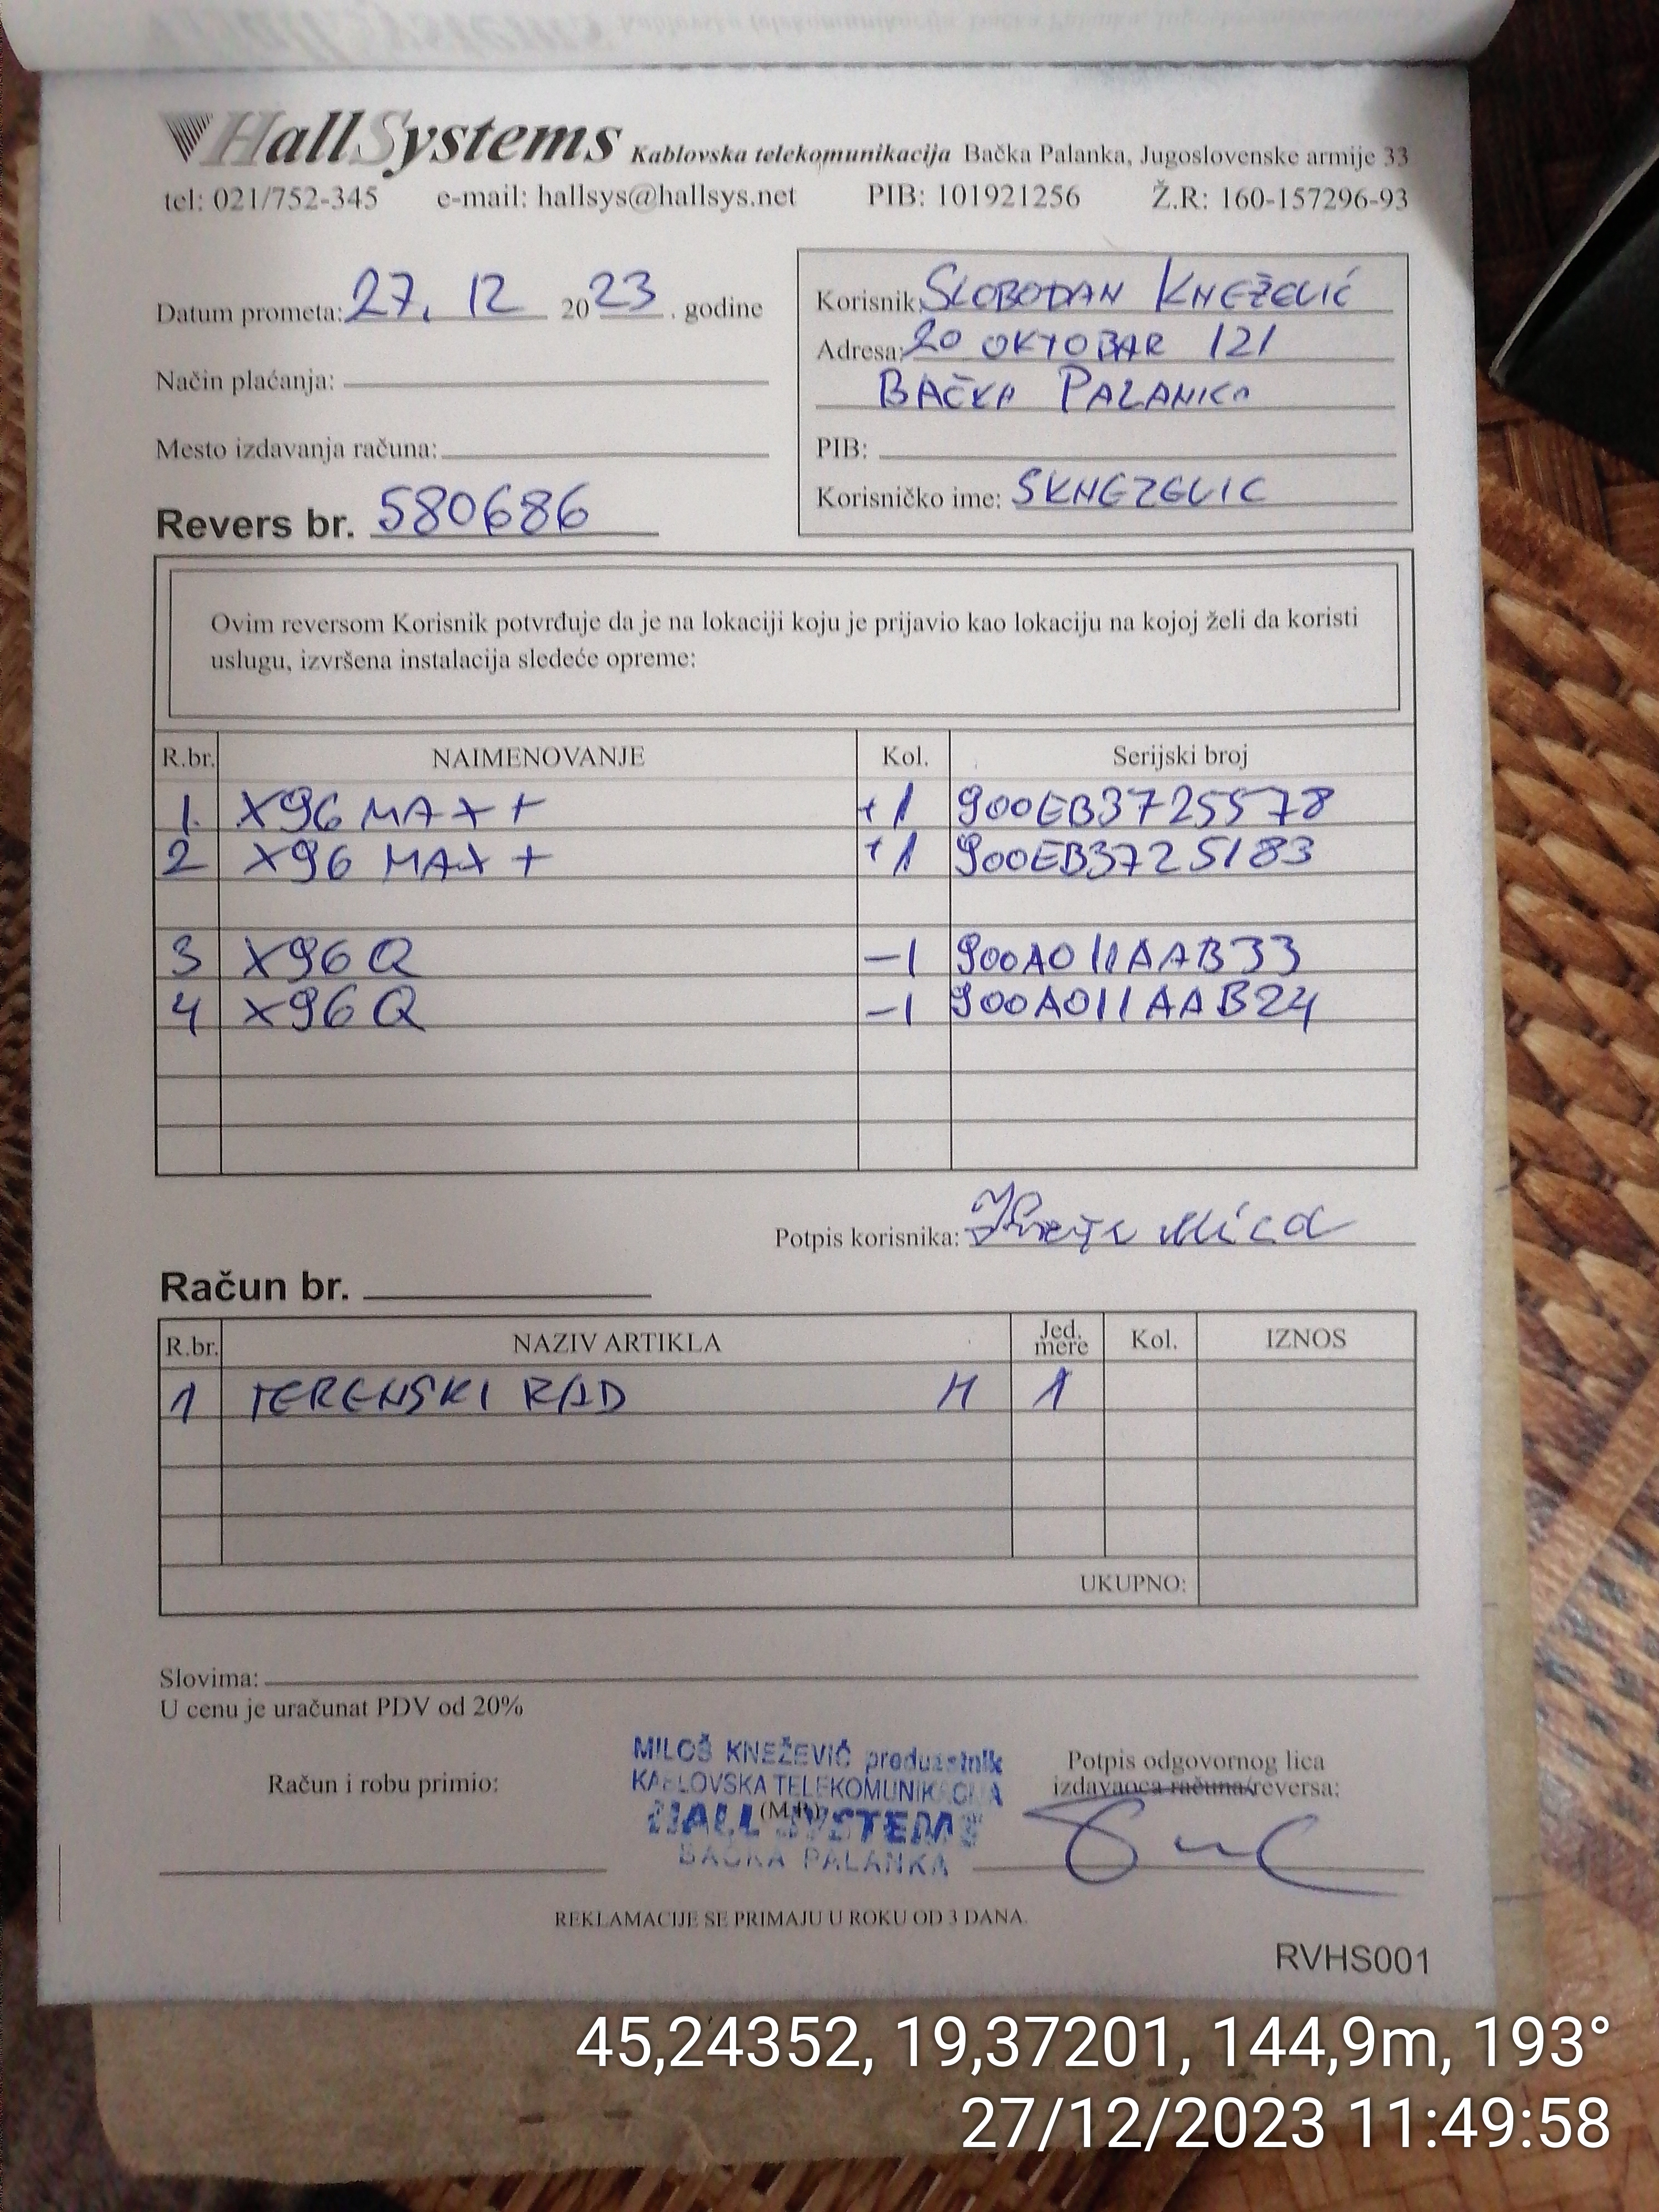 HallSystems Kablovska telekomunikacija Bačka Palanka, Jugoslovenske armije 33
tel: 021/752-345 e-mail: hallsys@hallsys.net PIB: 101921256 Ž.R: 160-157296-93
Datum prometa: 27. 12 2023. godine
Način plaćanja:
Mesto izdavanja računa:
Revers br. 580686
Korisnik: SLOBODAN KNEŽEVIĆ
Adresa: 20 OKTOBAR 121
BAČKA PALANKA
PIB:
Korisničko ime: SKNEZEVIC
Ovim reversom Korisnik potvrđuje da je na lokaciji koju je prijavio kao lokaciju na kojoj želi da koristi
uslugu, izvršena instalacija sledeće opreme:
R.br. NAIMENOVANJE Kol. Serijski broj
1. X96 MAX+ +1 900EB3725578
2 X96 MAX+ +1 900EB3725183
3 X96Q -1 900A011AAB33
4 X96Q -1 900A011AAB24
Potpis korisnika:
Račun br.
R.br. NAZIV ARTIKLA Jed. mere Kol. IZNOS
1 TERENSKI RAD H 1
UKUPNO:
Slovima:
U cenu je uračunat PDV od 20%
Račun i robu primio:
MILOŠ KNEŽEVIĆ preduzetnik
KABLOVSKA TELEKOMUNIKACIJA
(M.P.)
HALL SYSTEMS
BAČKA PALANKA
Potpis odgovornog lica
izdavaoca računa/reversa:
REKLAMACIJE SE PRIMAJU U ROKU OD 3 DANA.
RVHS001
45,24352, 19,37201, 144,9m, 193°
27/12/2023 11:49:58